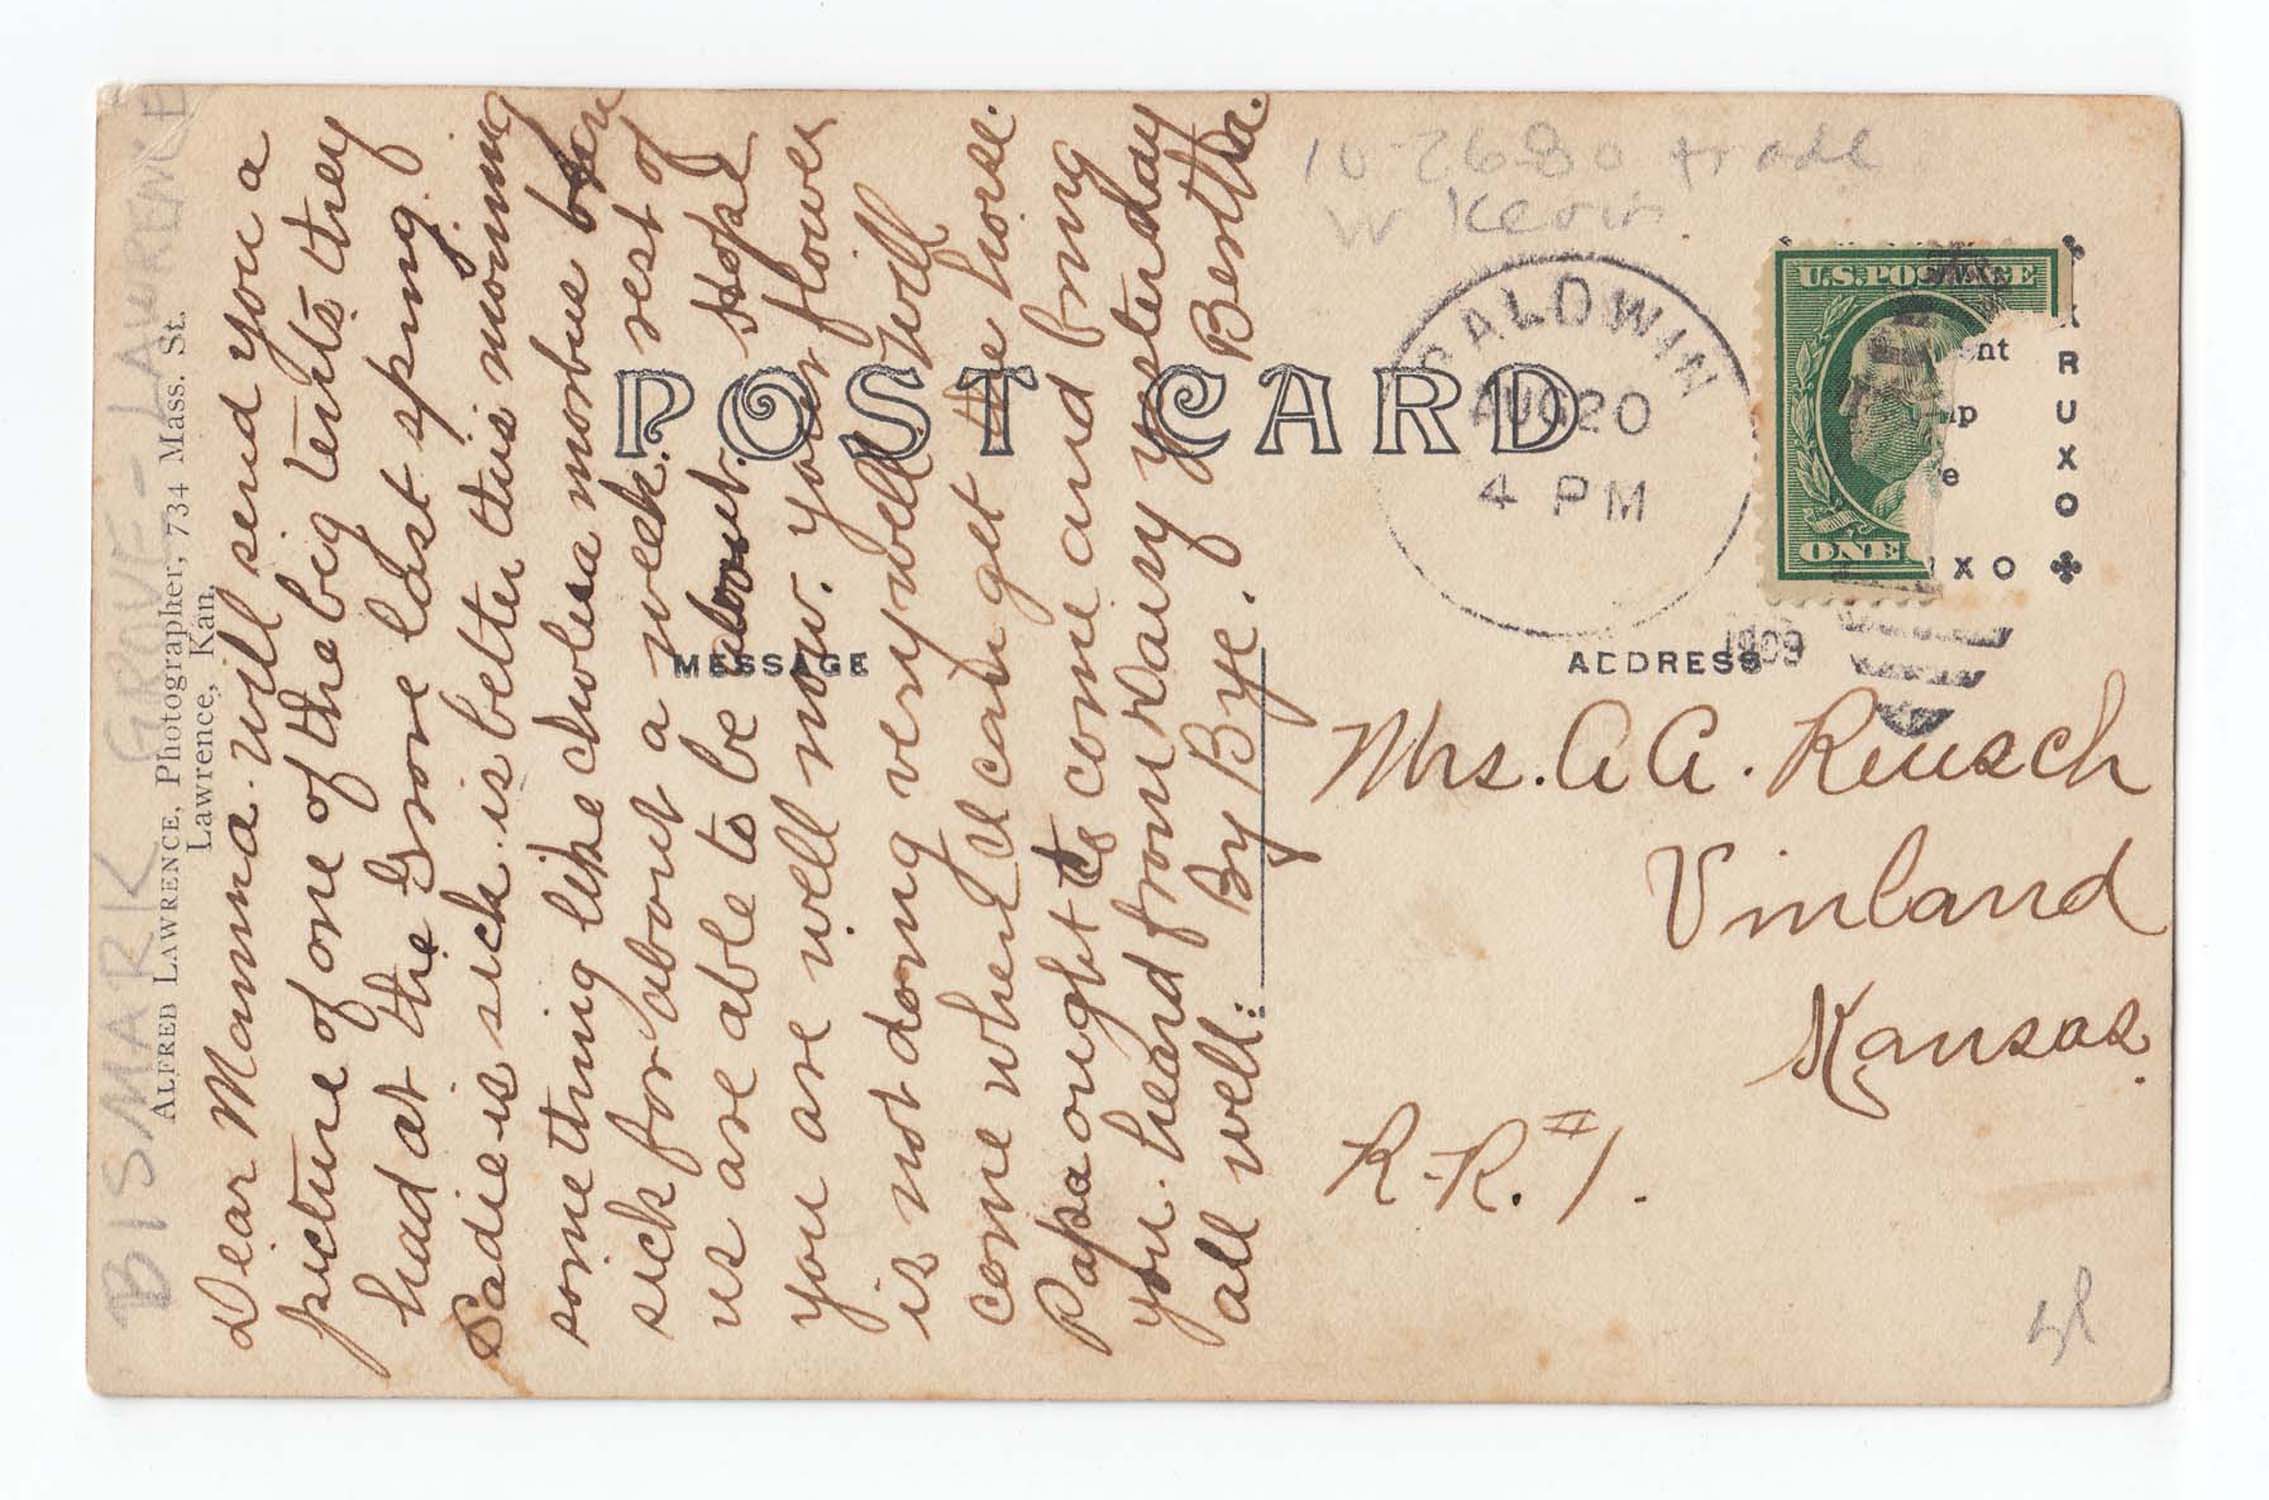 BISMARK GROVE - LAWRENCE
ALFRED LAWRENCE, Photographer, 734 Mass. St.
Lawrence, Kan.
Dear Mamma. Will send you a
picture of one of the big tents they
had at the Grove last spring.
Sadie is sick. is better this morning
something like cholera morbus been
sick for about a week. rest of
us are able to be about. Hope
you are well now. your flower
is not doing very well. Will
come when I can get the horse.
Papa ought to come and bring
you. heard from Daisy yesterday
all well: By Bye. Bertha.
POST CARD
MESSAGE
10-26-80 trade
W
BALDWIN
AUG 20
4 PM
1909
U.S. POSTAGE
ONE
RUXO
XO
ADDRESS
Mrs. A A. Reusch
Vinland
Kansas.
R.R. #1.